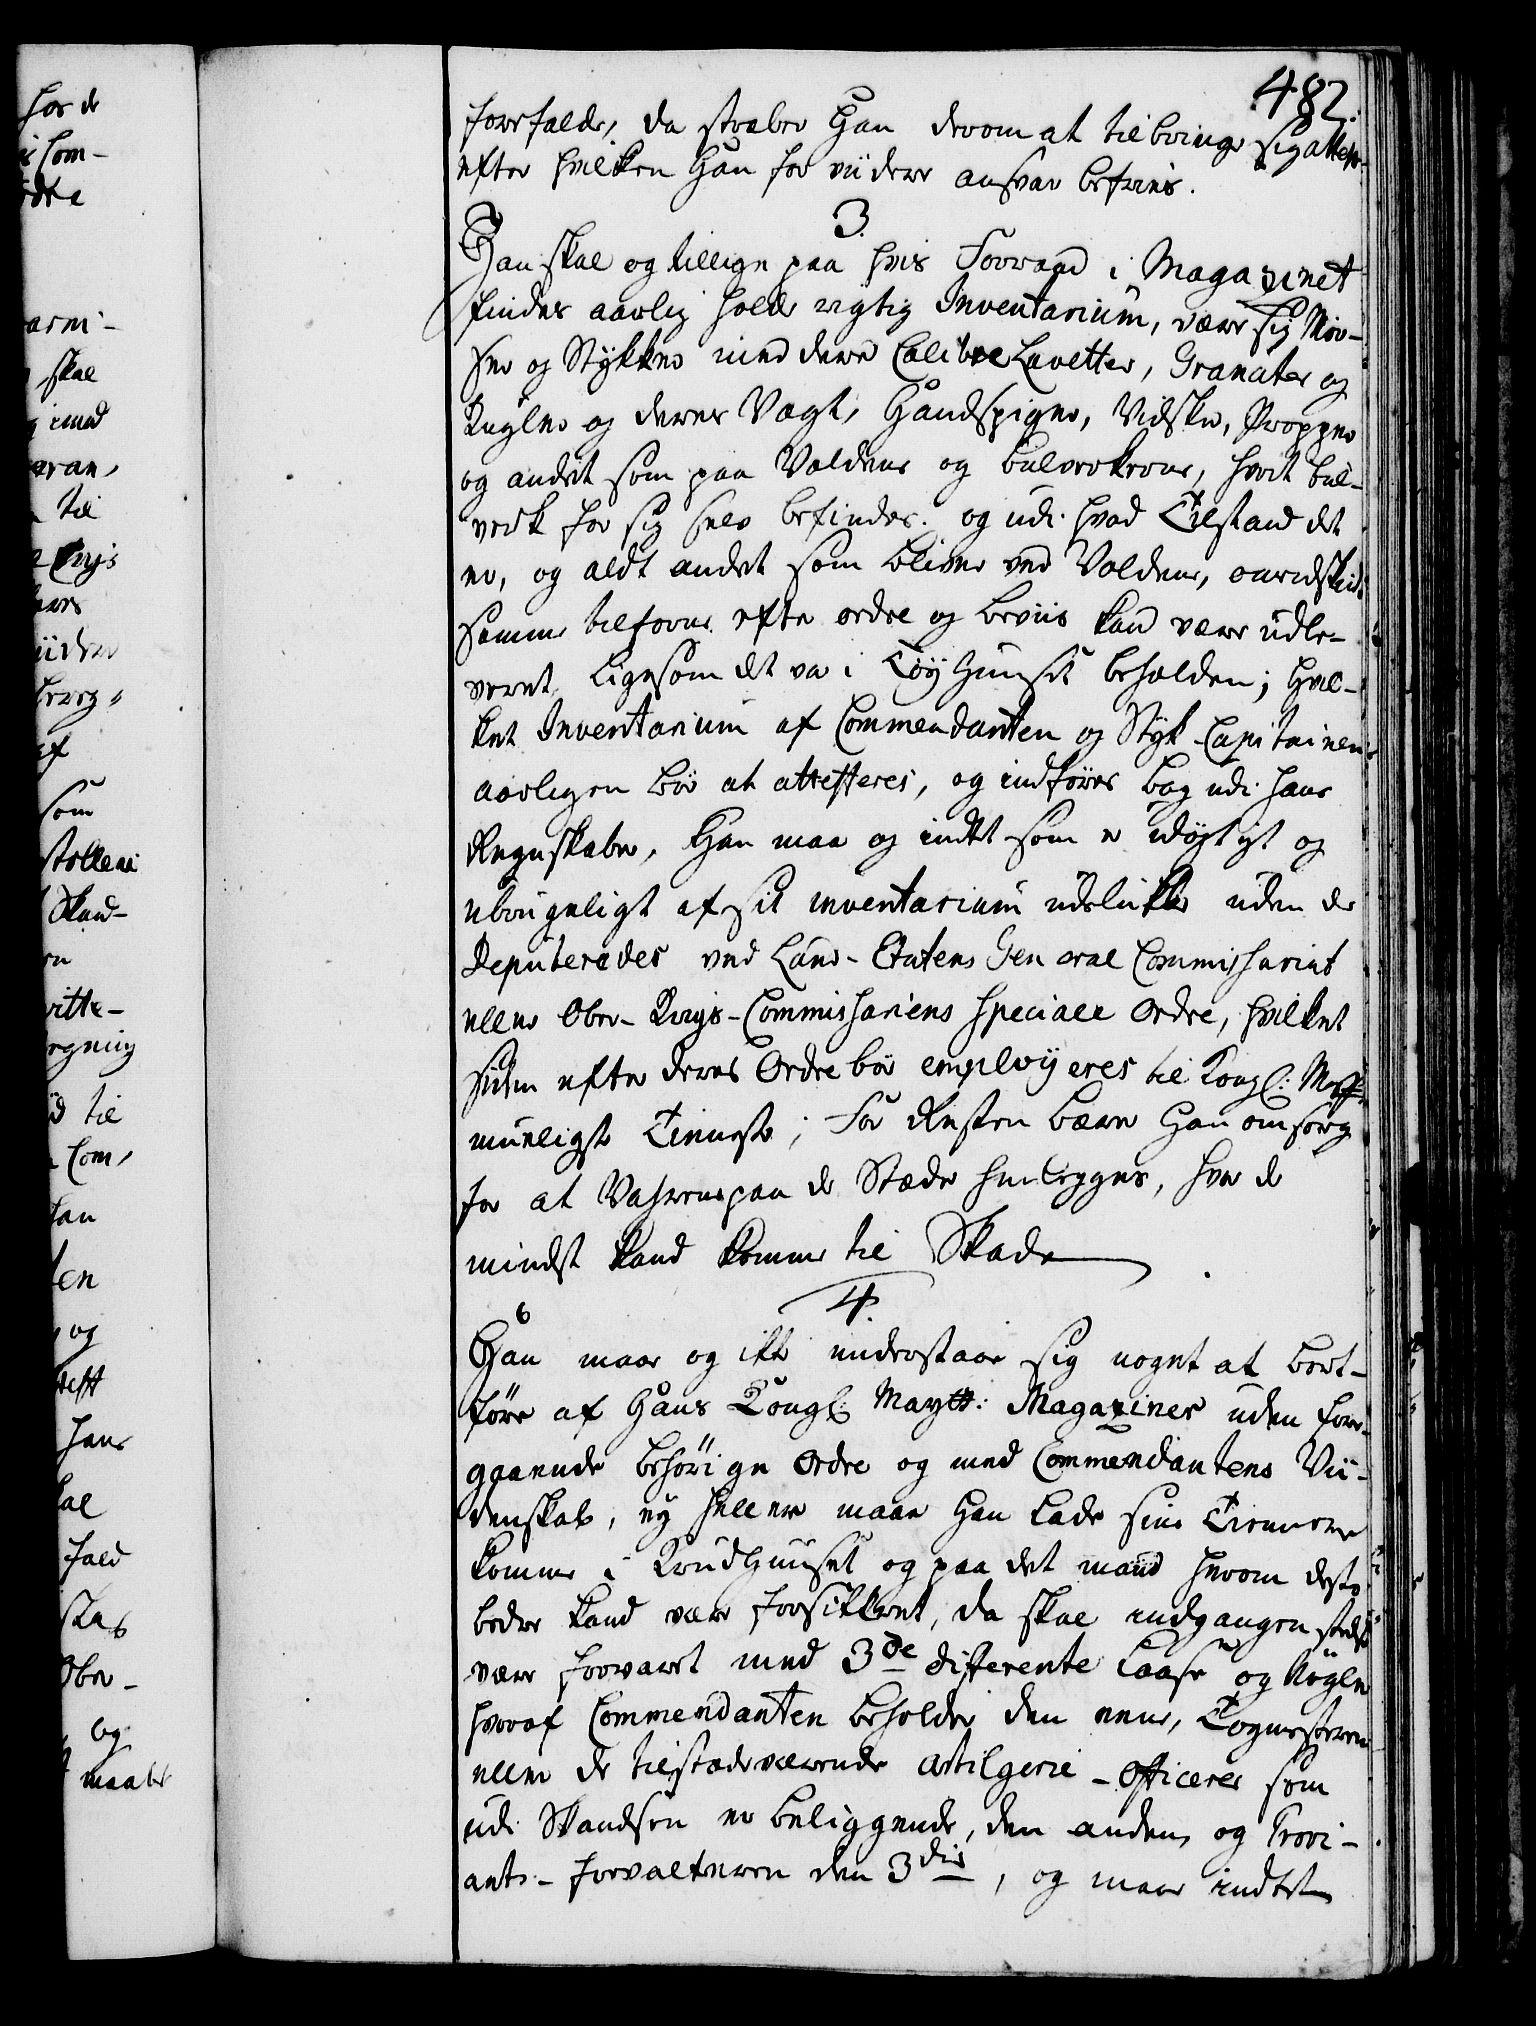 482.
forefalde, da stræber Han derom at tilbringe sig attest,
efter hvilken Han for viidere ansvar befries.
3.
Han skal og tillige paa hvis Forraad i Magazinet
findes aarlig holde rigtig Inventarium, være sig Mør-
sere og Stykker med dere Calibre Lavetter, Granater og
Kugler og deres Vægt, Haandspiger, Vidsker, Propper
og andet som paa Voldene og bulverkerne, hvert bul-
verk for sig selv befindes. og udi hvad Tilstand det
er, og aldt andet som bliver ved Voldene,
samme tilforne efter ordre og beviis kand være udle-
veret, ligesom det var i Tøyhuuset beholden; hvil-
ket Inventarium af Commendanten og Styk-Capitainen
aarligen bør at attesteres, og indføres bag udi hans
Regnskaber, Han maa og indtet som er udygtigt og
ubrugeligt af sit inventarium udelukke uden de
Deputeredes ved Land-Etatens General Commissariat
eller Ober-Krigs-Commissariens speciale Ordre, hvilket
siden efter deres Ordre bør employeres til Kongl: Maytt:
mueligste Tieneste; For Resten bærer Han omsorg
for at Vahrene paa de Stæder henlegges, hvor de
mindst kand komme til Skade
4.
Han maae og ikke understaae sig noget at bort-
føre af Hans Kongl: Maytt: Magaziner uden fore-
gaaende behørige Ordre og med Commendantens Vii-
denskab, ey heller maae Han lade sine Tienere
komme i Krudhuuset og paa det mand herom desto
bedre kand være forsikkret, da skal indgangen stedse
være forvaret med 3de differente Laase og Nøgler
hvoraf Commendanten beholder den eene, Tøgmesteren
eller de tilstædeværende Artilgerie-Officerer som
udi Skandsen er beliggende, den anden, og Provi-
ant-Forvalteren den 3die, og maae indtet